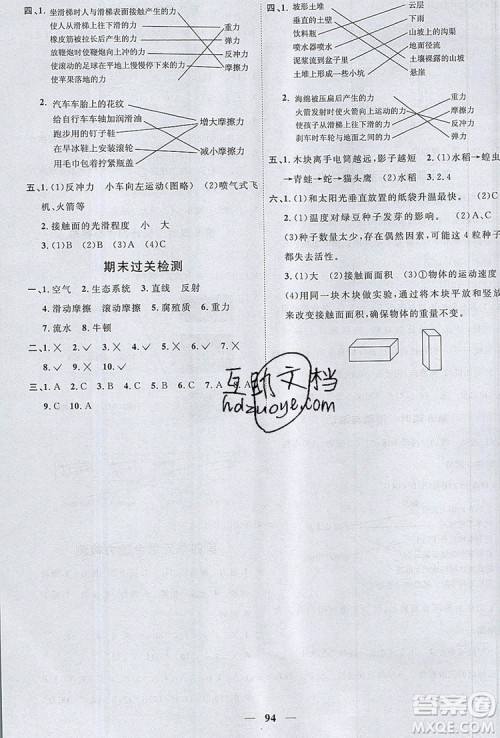 四、1. 坐滑梯时人与滑梯表面接触产生的力 重力
使人从滑梯上向下滑的力 弹力
橡皮筋被拉长后产生的力 反冲力
放鞭炮时使鞭炮向上冲的力 浮力
使滚动的足球在平地上慢慢停下来的力 摩擦力
使苹果落地的力
2. 汽车车胎上的花纹
给自行车车轴加润滑油 增大摩擦力
跑步用的钉子鞋
在旱冰鞋上安装轮子 减小摩擦力
用毛巾包着拧紧瓶盖
五、1. (1)反冲力 小车向左运动(图略) (2)喷气式飞
机、火箭等
2. 接触面的光滑程度 小 大
3. (1)B (2)A (3)B
期末过关检测
一、1. 空气 2. 生态系统 3. 直线 反射
4. 滑动摩擦 滚动摩擦 5. 腐殖质 6. 重力
7. 流水 8. 牛顿
二、1. ✓ 2. ✓ 3. × 4. ✓ 5. × 6. ✓
7. × 8. × 9. ✓ 10. ✓
三、1. A 2. A 3. B 4. C 5. A 6. B 7. A 8. A
9. C 10. A
四、1. 坡形土堆 云层
土堆 下雨
饮料瓶 山坡上的沟
喷水器喷水 地面径流
泥浆流到盆子里 土壤裸露的山坡
土堆上形成一些小坑 山谷
2. 海绵被压扁后产生的力 重力
火箭发射时使火箭向上冲的力 弹力
使孩子从滑梯上下滑的力 摩擦力
刹车时车轮与地面之间的力 反冲力
五、1. 木块离手电筒越近,影子越短 2. (1)水稻 (2)水稻→蝗虫
→青蛙→蛇→猫头鹰 (3)水稻
六、1. (1)和太阳光垂直放置的纸袋升温最快。 (2)B
2. (1)温度对绿豆种子发芽的影响。 (2)合理,
种子数量太少,存在偶然因素,可能这4粒种子都
失去活性。
3. (1)接触面面积 (2)①物体的运动速度 ②
(4)用同一块木块做实验,将木块平放和竖放来
来改变接触面面积,确保物体的重量不变。
互助文档
hdzuoye.com
94
答案圈
MXQE.COM